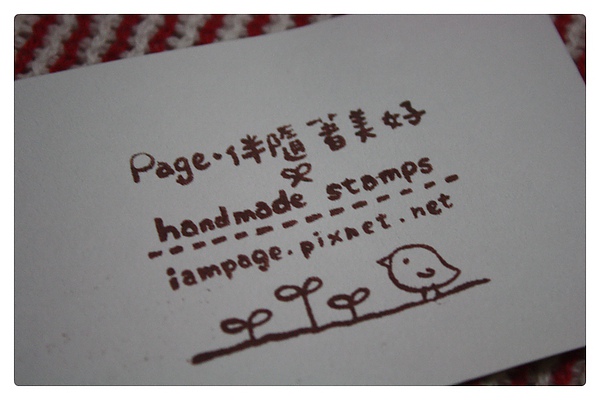 Page·伴隨著美好
handmade stamps
iampage.pixnet.net